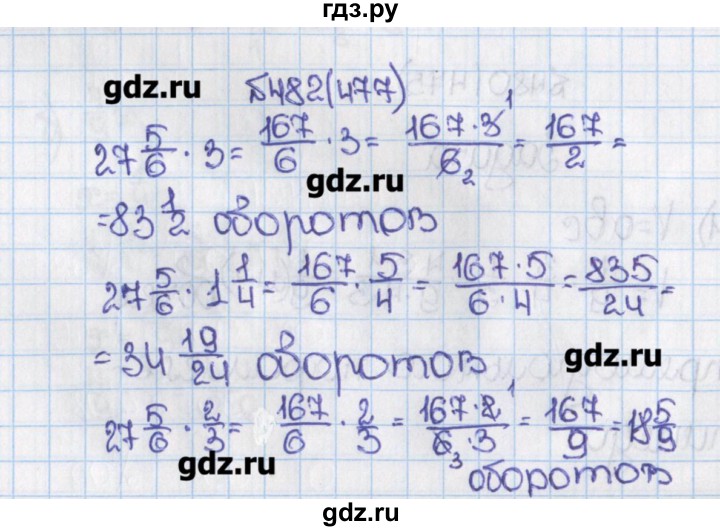 гдз.ру
gdz.ru
№482(477)
27 5/6 · 3 = 167/6 · 3 = 167·3/6 1 2 = 167/2 =
gdz.ru
= 83 1/2 оборотов
27 5/6 · 1 1/4 = 167/6 · 5/4 = 167·5/6·4 = 835/24 =
= 34 19/24 оборотов
gdz.ru
27 5/6 · 2/3 = 167/6 · 2/3 = 167·2/6·3 1 3 = 167/9 = 18 5/9
gdz.ru
оборотов